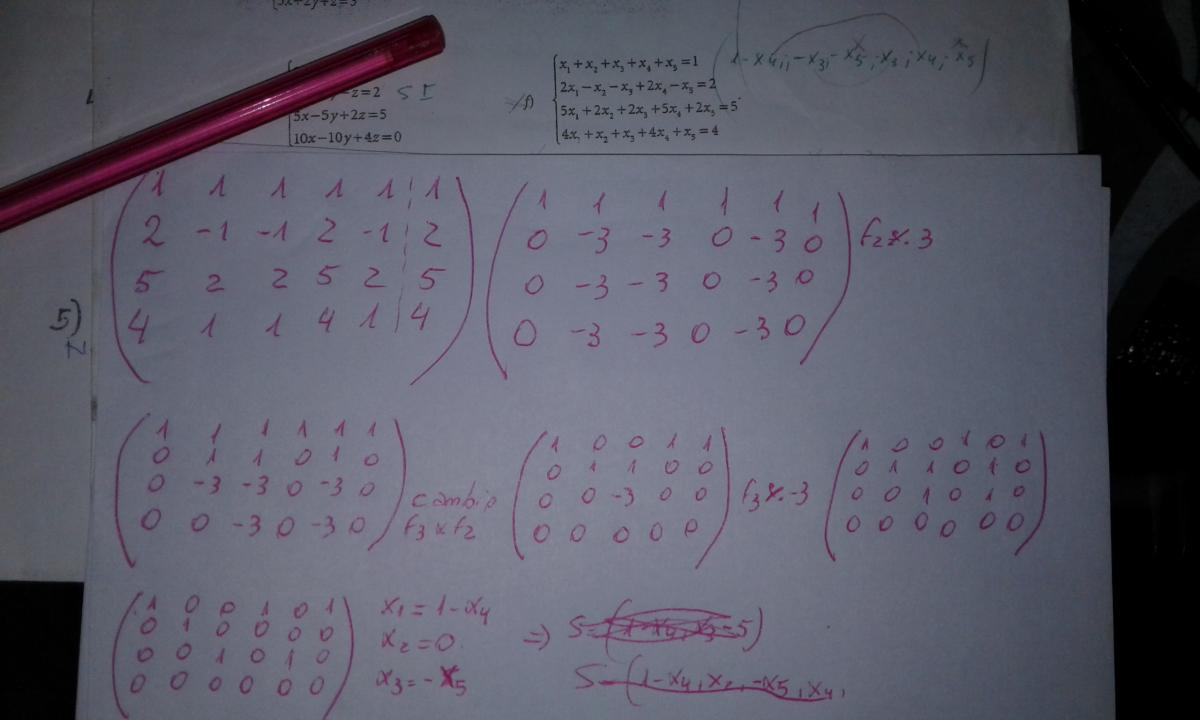 5x+2y+z=3
-z=2 SI
5x-5y+2z=5
10x-10y+4z=0
x₁+x₂+x₃+x₄+x₅=1
2x₁-x₂-x₃+2x₄-x₅=2
5x₁+2x₂+2x₃+5x₄+2x₅=5
4x₁+x₂+x₃+4x₄+x₅=4
5)
1 1 1 1 1 1
2 -1 -1 2 -1 2
5 2 2 5 2 5
4 1 1 4 1 4
1 1 1 1 1 1
0 -3 -3 0 -3 0 f₂x.3
0 -3 -3 0 -3 0
0 -3 -3 0 -3 0
1 1 1 1 1 1
0 1 1 0 1 0
0 -3 -3 0 -3 0
0 0 -3 0 -3 0
cambio
f₃xf₂
1 0 0 1 1
0 1 1 0 0
0 0 -3 0 0 f₃x.-3
0 0 0 0 0
1 0 0 1 0 1
0 1 1 0 1 0
0 0 1 0 1 0
0 0 0 0 0 0
1 0 0 1 0 1
0 1 0 0 0 0
0 0 1 0 1 0
0 0 0 0 0 0
x₁=1-x₄
x₂=0
x₃=-x₅
=> S=(1-x₄, x₃=5)
S=(1-x₄,x₂,-x₅,x₄,